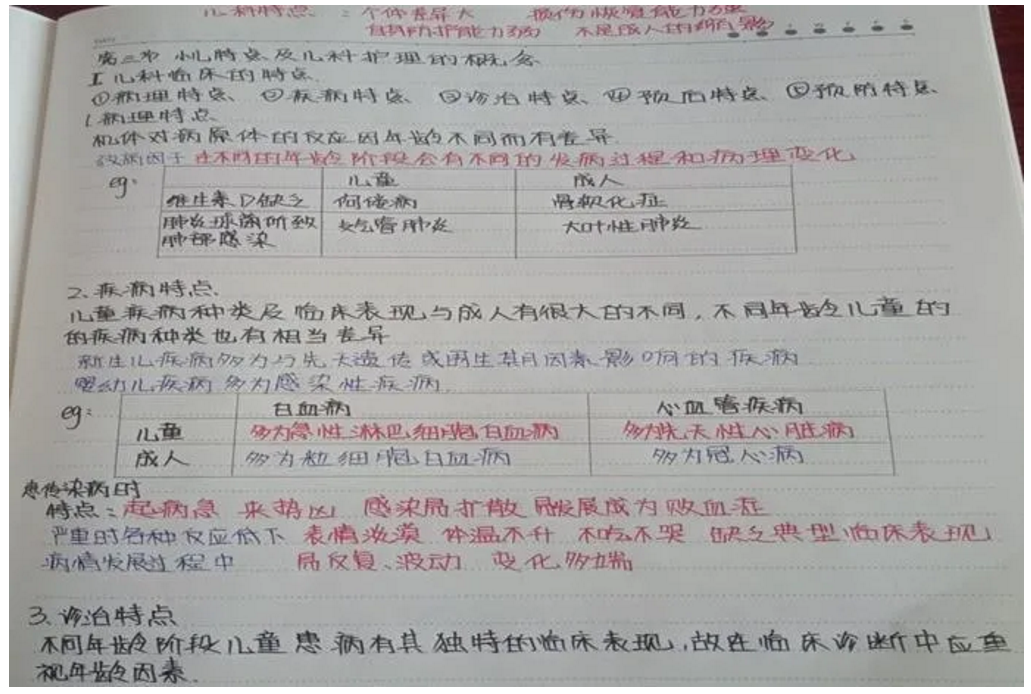 儿科特点：个体差异大 损伤恢复能力强
自我防护能力弱 不是成人的缩影
第三节 小儿特点及儿科护理的概念
I 儿科临床的特点
①病理特点、②疾病特点、③诊治特点、④预后特点、⑤预防特点
1病理特点、
机体对病原体的反应因年龄不同而有差异
致病因子在不同的年龄阶段会有不同的发病过程和病理变化
eg: 儿童 成人
维生素D缺乏 佝偻病 骨软化症
肺炎球菌所致肺部感染 支气管肺炎 大叶性肺炎
2.疾病特点
儿童疾病种类及临床表现与成人有很大的不同，不同年龄儿童的
的疾病种类也有相当差异
新生儿疾病多为与先天遗传或围生期因素影响的疾病
婴幼儿疾病多为感染性疾病
eg: 白血病 心血管疾病
儿童 多为急性淋巴细胞白血病 多为先天性心脏病
成人 多为粒细胞白血病 多为冠心病
患传染病时
特点：起病急 来势凶 感染易扩散 易发展成为败血症
严重时各种反应低下 表情淡漠 体温不升 不吃不哭 缺乏典型临床表现
病情发展过程中 易反复、波动 变化多端
3.诊治特点
不同年龄阶段儿童患病有其独特的临床表现，故在临床诊断中应重
视年龄因素.